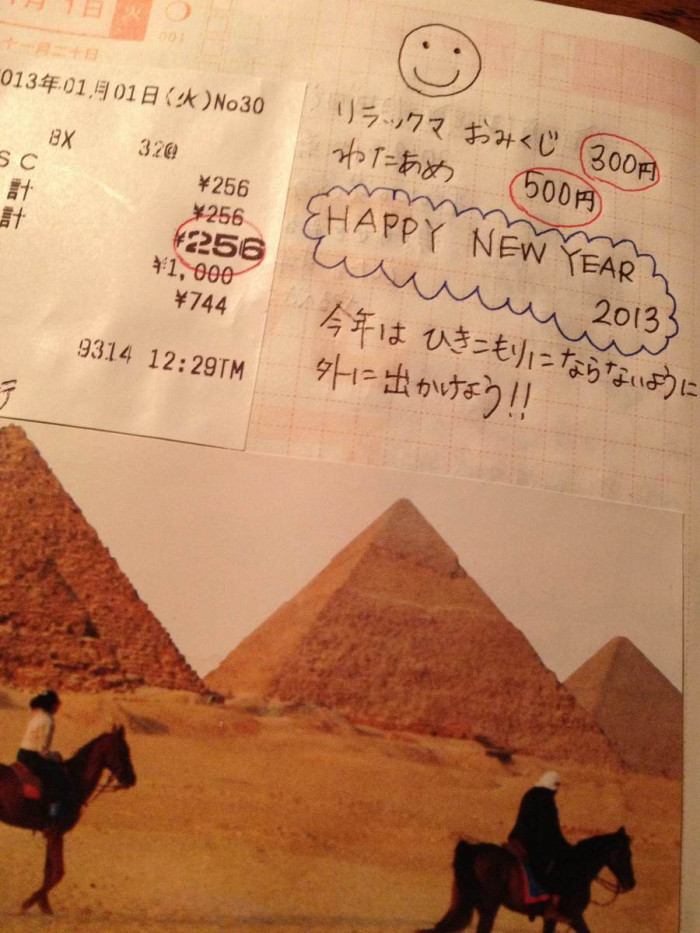 1日 火
001
十一月二十日
2013年01月01日(火)No30
8X 32@
SC ¥256
計 ¥256
計 ¥256
¥1,000
¥744
9314 12:29TM
リラックマ おみくじ 300円
わたあめ 500円
HAPPY NEW YEAR
2013
今年は ひきこもりにならないように
外に出かけよう!!